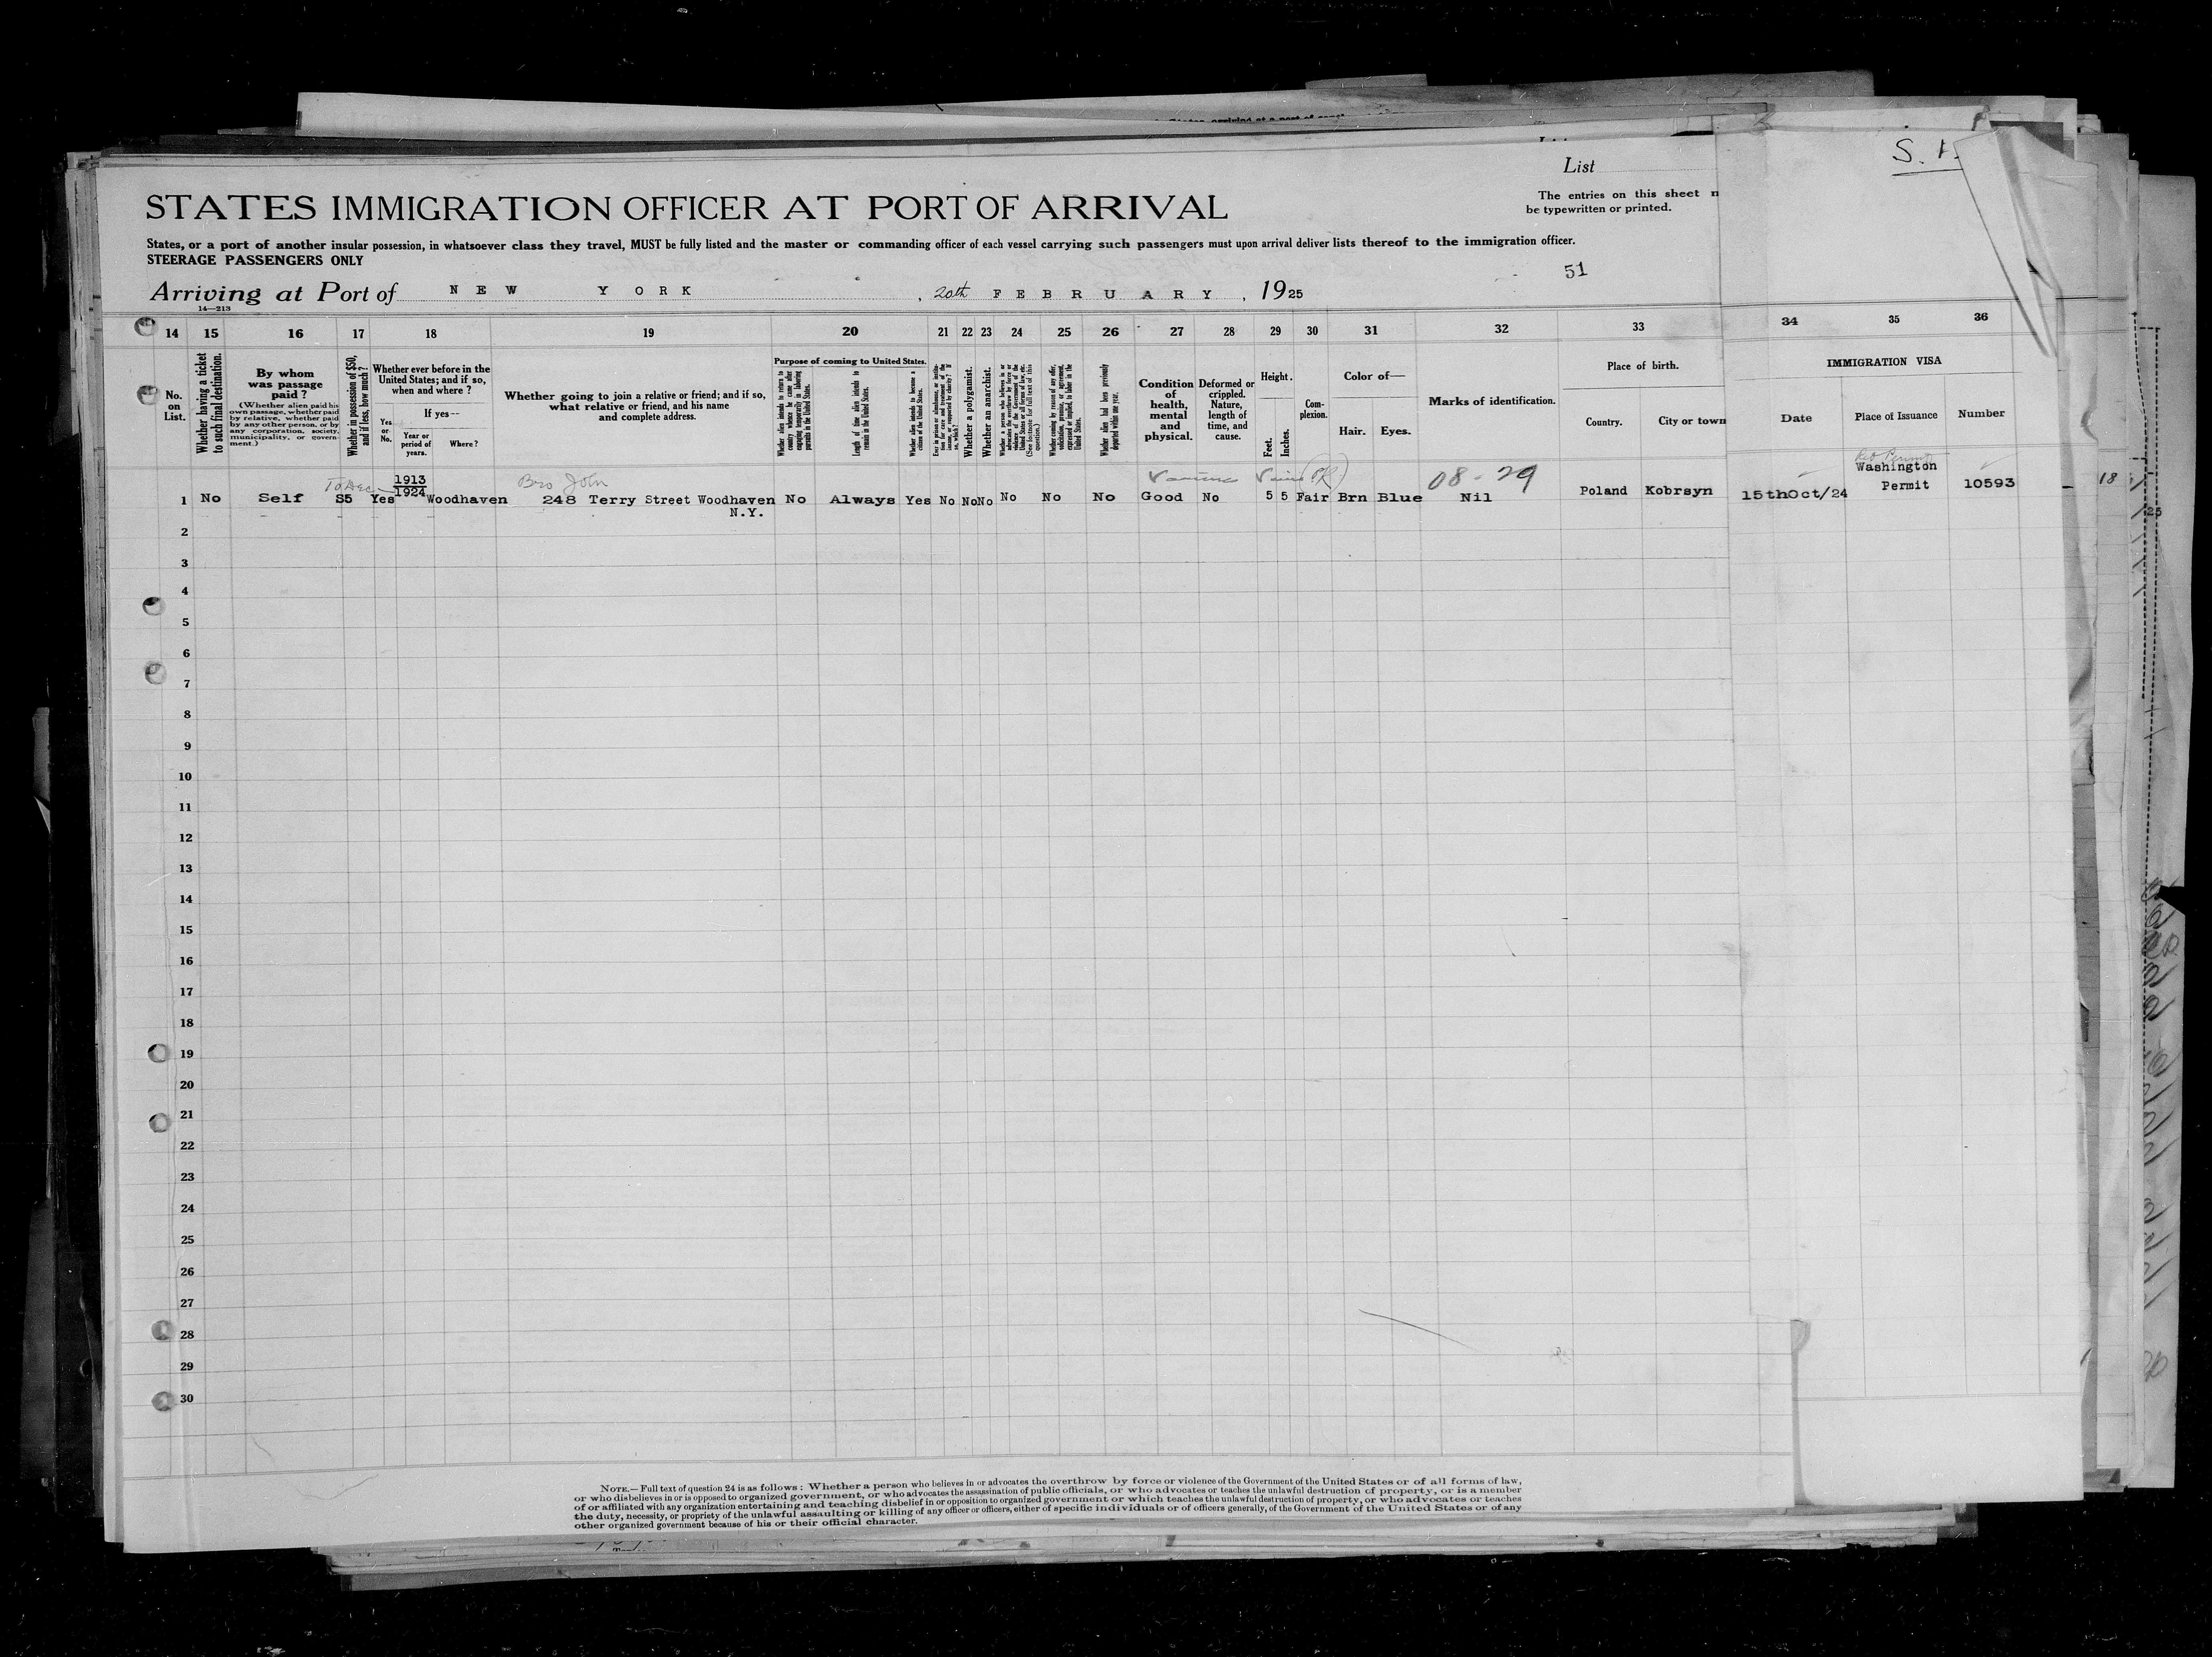 List
S.
STATES IMMIGRATION OFFICER AT PORT OF ARRIVAL
The entries on this sheet
be typewritten or printed.
States, or a port of another insular possession, in whatsoever class they travel, MUST be fully listed and the master or commanding officer of each vessel carrying such passengers must upon arrival deliver lists thereof to the immigration officer.
STEERAGE PASSENGERS ONLY
51
Arriving at Port of NEW YORK, 20th FEBRUARY, 1925
14—213
14 15 16 17 18 19 20 21 22 23 24 25 26 27 28 29 30 31 32 33 34 35 36
No. on List.
Whether having a ticket to such final destination.
By whom was passage paid?
(Whether alien paid his own passage, whether paid by relative, whether paid by any other person, or by any corporation, society, municipality, or government.)
Whether in possession of $50, and if less, how much?
Whether ever before in the United States; and if so, when and where?
Yes or No.
If yes—
Year or period of years.
Where?
Whether going to join a relative or friend; and if so, what relative or friend, and his name and complete address.
Purpose of coming to United States.
Whether alien intends to return to country whence he came after engaging temporarily in laboring pursuits in the United States.
Length of time alien intends to remain in the United States.
Whether alien intends to become a citizen of the United States.
Whether a polygamist.
Whether an anarchist.
Whether coming by reason of any offer, solicitation, promise, or agreement, expressed or implied, to labor in the United States.
Whether alien had been previously deported within one year.
Condition of health, mental and physical.
Deformed or crippled. Nature, length of time, and cause.
Height.
Feet.
Inches.
Complexion.
Color of—
Hair.
Eyes.
Marks of identification.
Place of birth.
Country.
City or town
IMMIGRATION VISA
Date
Place of Issuance
Number
To Dec
1913
Bro John
08-29
Washington
1 No Self $5 Yes 1924 Woodhaven 248 Terry Street Woodhaven No Always Yes No No No No No No Good No 5 5 Fair Brn Blue Nil Poland Kobrsyn 15th Oct/24 Permit 10593
N.Y.
18
2
3
4
5
6
7
8
9
10
11
12
13
14
15
16
17
18
19
20
21
22
23
24
25
26
27
28
29
30
NOTE.—Full text of question 24 is as follows: Whether a person who believes in or advocates the overthrow by force or violence of the Government of the United States or of all forms of law,
or who disbelieves in or is opposed to organized government, or who advocates the assassination of public officials, or who advocates or teaches the unlawful destruction of property, or is a member
of or affiliated with any organization entertaining and teaching disbelief in or opposition to organized government or which teaches the unlawful destruction of property, or who advocates or teaches
the duty, necessity, or propriety of the unlawful assaulting or killing of any officer or officers, either of specific individuals or of officers generally, of the Government of the United States or of any
other organized government because of his or their official character.